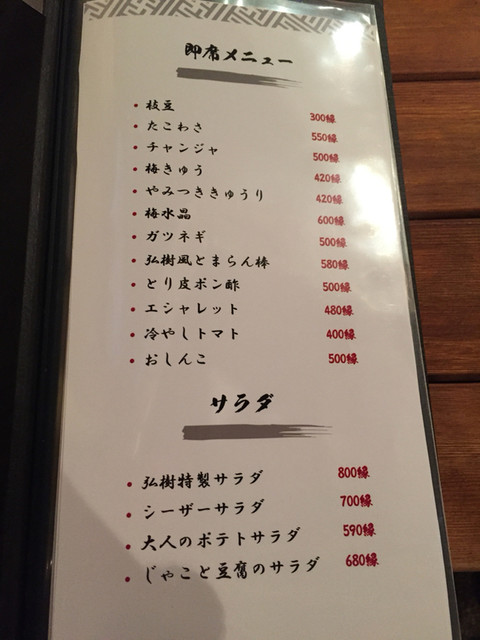 即席メニュー
・枝豆 300縁
・たこわさ 550縁
・チャンジャ 500縁
・梅きゅう 420縁
・やみつききゅうり 420縁
・梅水晶 600縁
・ガツネギ 500縁
・弘樹風とまらん棒 580縁
・とり皮ポン酢 500縁
・エシャレット 480縁
・冷やしトマト 400縁
・おしんこ 500縁
サラダ
・弘樹特製サラダ 800縁
・シーザーサラダ 700縁
・大人のポテトサラダ 590縁
・じゃこと豆腐のサラダ 680縁